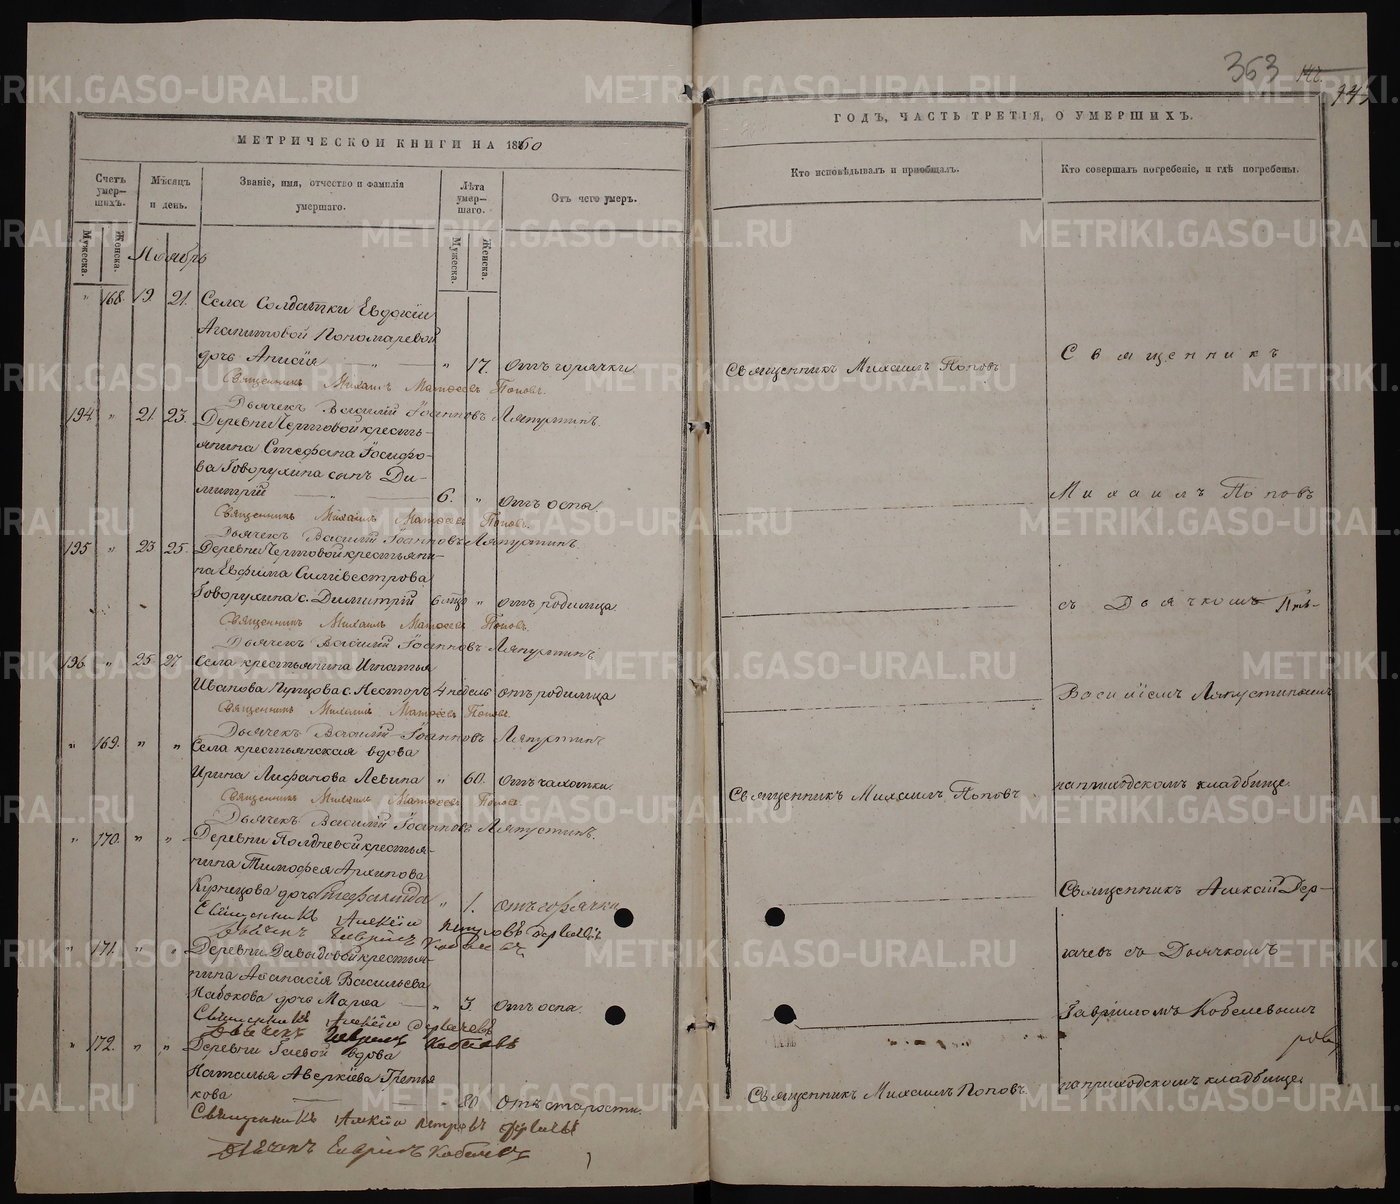 363
МЕТРИЧЕСКОЙ КНИГИ НА 1860
Счетъ умер-
шихъ.
Мужеска.
Женска.
Мѣсяцъ
и день.
Званіе, имя, отчество и фамилія
умершаго.
Лѣта
умер-
шаго.
Мужеска.
Женска.
Отъ чего умеръ.
Ноябрь
" 168. 19. 21. Села Солдатки Евдокіи
Агапитовой Пономаревой
дочь Анисія " 17. отъ горячки.
Священникъ Михаилъ Матѳеевъ Поповъ.
Дьячекъ Василій Іоанновъ Ляпустинъ.
194 " 21 23. Деревни Чертовой кресть-
янина Стефана Іосифо-
ва Говорухина сынъ Ди-
митрій 6. " отъ оспы.
Священникъ Михаилъ Матѳеевъ Поповъ.
Дьячекъ Василій Іоанновъ Ляпустинъ.
195 " 23 25. Деревни Чертовой крестьяни-
на Евфима Силивестрова
Говорухина с. Димитрій 6 мѣс " отъ родимца
Священникъ Михаилъ Матѳеевъ Поповъ.
Дьячекъ Василій Іоанновъ Ляпустинъ.
196 " 25 27. Села крестьянина Игнатья
Иванова с. Несторъ 4 недель отъ родимца
Священникъ Михаилъ Матѳеевъ Поповъ.
Дьячекъ Василій Іоанновъ Ляпустинъ
" 169. " " Села крестьянская вдова
Ирина Лифанова Левина " 60. отъ чахотки.
Священникъ Михаилъ Матѳеевъ Поповъ
Дьячекъ Василій Іоанновъ Ляпустинъ.
" 170. " " Деревни Полдневой крестья-
нина Тимофея Архипова
Кузнецова дочь Стефанида " 1. отъ горячки
Священникъ Алексій Петровъ Дерягинъ
Дьячекъ Гавріилъ
" 171. " " Деревни Давыдовой крестья-
нина Аѳанасія Васильева
Набокова дочь Марѳа " 3. отъ оспы.
Священникъ Алексій
Дьячекъ Гавріилъ
" 172. " " Деревни Гаевой вдова
Наталья Аверкіева Третья
кова " 80. Отъ старости.
Священникъ Алексій Петровъ
Дьячекъ Гавріилъ
ГОДЪ, ЧАСТЬ ТРЕТІЯ, О УМЕРШИХЪ.
Кто исповѣдывалъ и пріобщалъ.
Кто совершалъ погребеніе, и гдѣ погребены.
Священникъ Михаилъ Поповъ
Священникъ Михаилъ Поповъ
Священникъ Михаилъ Поповъ.
Священникъ
Михаилъ Поповъ
съ Дьячкомъ
Василіемъ Ляпустинымъ
на приходскомъ кладбище.
Священникъ Алексій Дер-
съ Дьячкомъ
Гавріиломъ Кобелевымъ
на приходскомъ кладбище.
METRIKI.GASO-URAL.RU